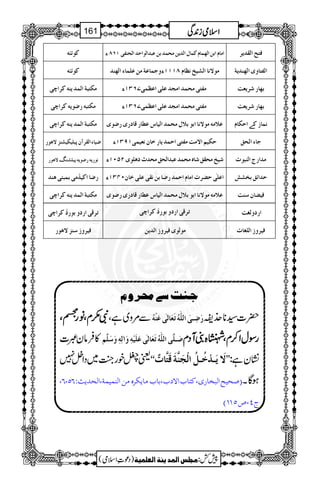 161 اسلامی زندگی
فتح القدیر امام ابن الهمام کمال الدین محمد بن عبدالواحد الحنفی ٨٦١ھ کوئٹه
الفتاوی الهندیة مولانا الشیخ نظام ١١١٨ھ وجماعة من علماء الهند کوئٹه
بهار شریعت مفتی محمد امجد علی اعظمی ١٣٦٧ھ مکتبة المدینه کراچی
بهار شریعت مفتی محمد امجد علی اعظمی ١٣٦٧ھ مکتبه رضویه کراچی
نماز کے احکام علامه مولانا ابو بلال محمد الیاس عطار قادری رضوی مکتبة المدینه کراچی
جاء الحق حکیم الامت مفتی احمد یار خان نعیمی ١٣٩١ھ ضیاء القرآن پبلیکیشنز لاهور
مدارج النبوت شیخ محقق شاه محمد عبدالحق محدث دهلوی ١٠٥٢ھ نوریه رضویه پبلشنگ، لاهور
حدائق بخشش اعلی حضرت امام احمد رضا بن نقی علی خان ١٣٤٠ھ رضا اکیڈمی بمبئی هند
فیضان سنت علامه مولانا ابو بلال محمد الیاس عطار قادری رضوی مکتبة المدینه کراچی
اردو لغت ترقی اردو بورڈ کراچی ترقی اردو بورڈ کراچی
فیروز اللغات مولوی فیروز الدین فیروز سنز لاهور
جنت سے محروم
حضرت سیدنا حذیفہ رَضِیَ اللّٰهُ تَعَالٰی عَنْهُ سے مروی ہے، نبی مکرم، نورِ مجسم،
رسولِ اکرم، شہنشاہِ بنی آدم صَلَّی اللّٰهُ تَعَالٰی عَلَیْهِ وَاٰلِهٖ وَسَلَّم کا فرمانِ عبرت
نشان ہے: ”لَا یَدْخُلُ الْجَنَّةَ قَتَّاتٌ“ یعنی چغل خور جنت میں داخل نہیں
ہوگا۔ (صحیح البخاری، کتاب الادب، باب مایکره من النمیمة، الحدیث: ٦٠٥٦،
ج٤، ص١١٥)
پیش کش: مجلس المدینة العلمیة (دعوتِ اسلامی)